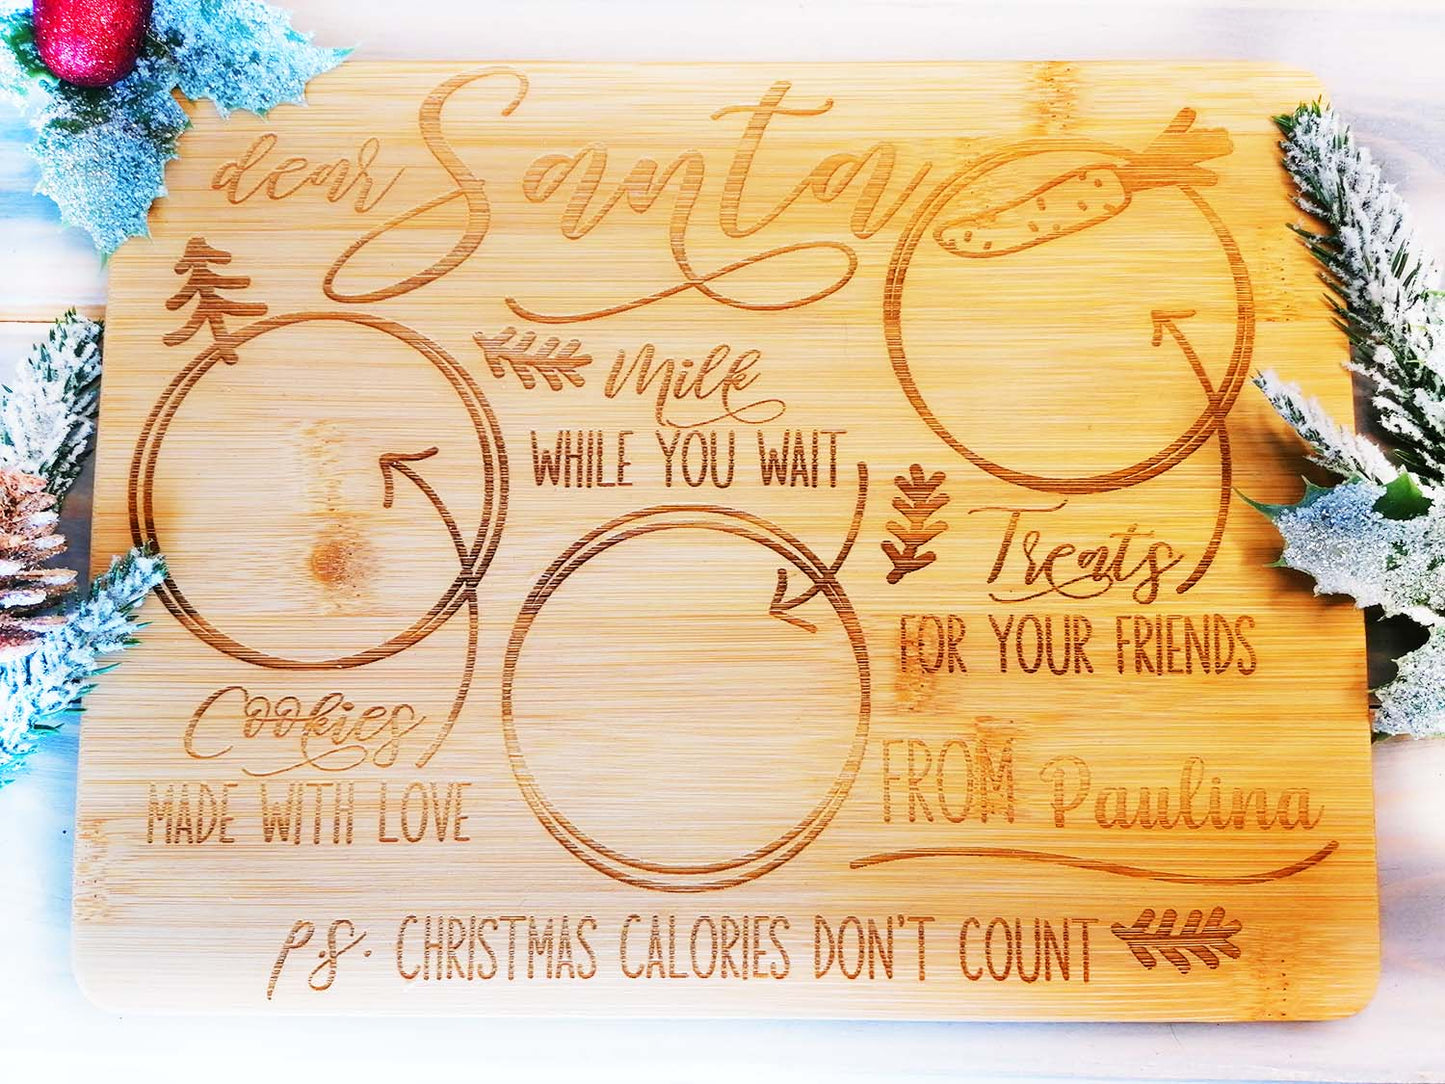 dear Santa
Milk
WHILE YOU WAIT
Treats
FOR YOUR FRIENDS
Cookies
MADE WITH LOVE
FROM Paulina
p.s. CHRISTMAS CALORIES DON'T COUNT